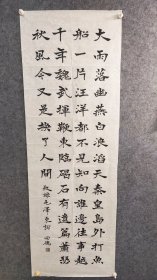 大雨落幽燕白浪滔天秦皇島外打魚
船一片汪洋都不見知向誰邊往事越
千年魏武揮鞭東臨碣石有遺篇蕭瑟
秋風今又是換了人間 敬録毛澤東詞